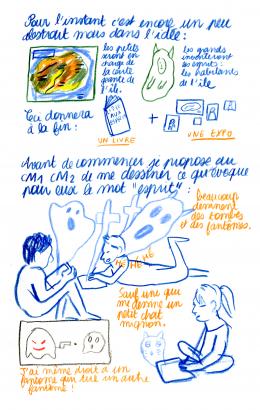 Pour l'instant c'est encore un peu
abstrait mais dans l'idée :
les petits
seront en
charge de
la carte
géante de
l'île.
les grands
inventeront
les esprits :
les habitants
de l'île
Ceci donnera
à la fin :
+
UN LIVRE
UNE EXPO.
Avant de commencer je propose au
CM1 CM2 de me dessiner ce qu'évoque
pour eux le mot "esprit" :
beaucoup
dessinent
des tombes
et des fantômes.
HÉ HÉ HÉ
Sauf une qui
me dessine un
petit chat
mignon.
J'ai même droit à un
fantôme qui tue un autre
fantôme !